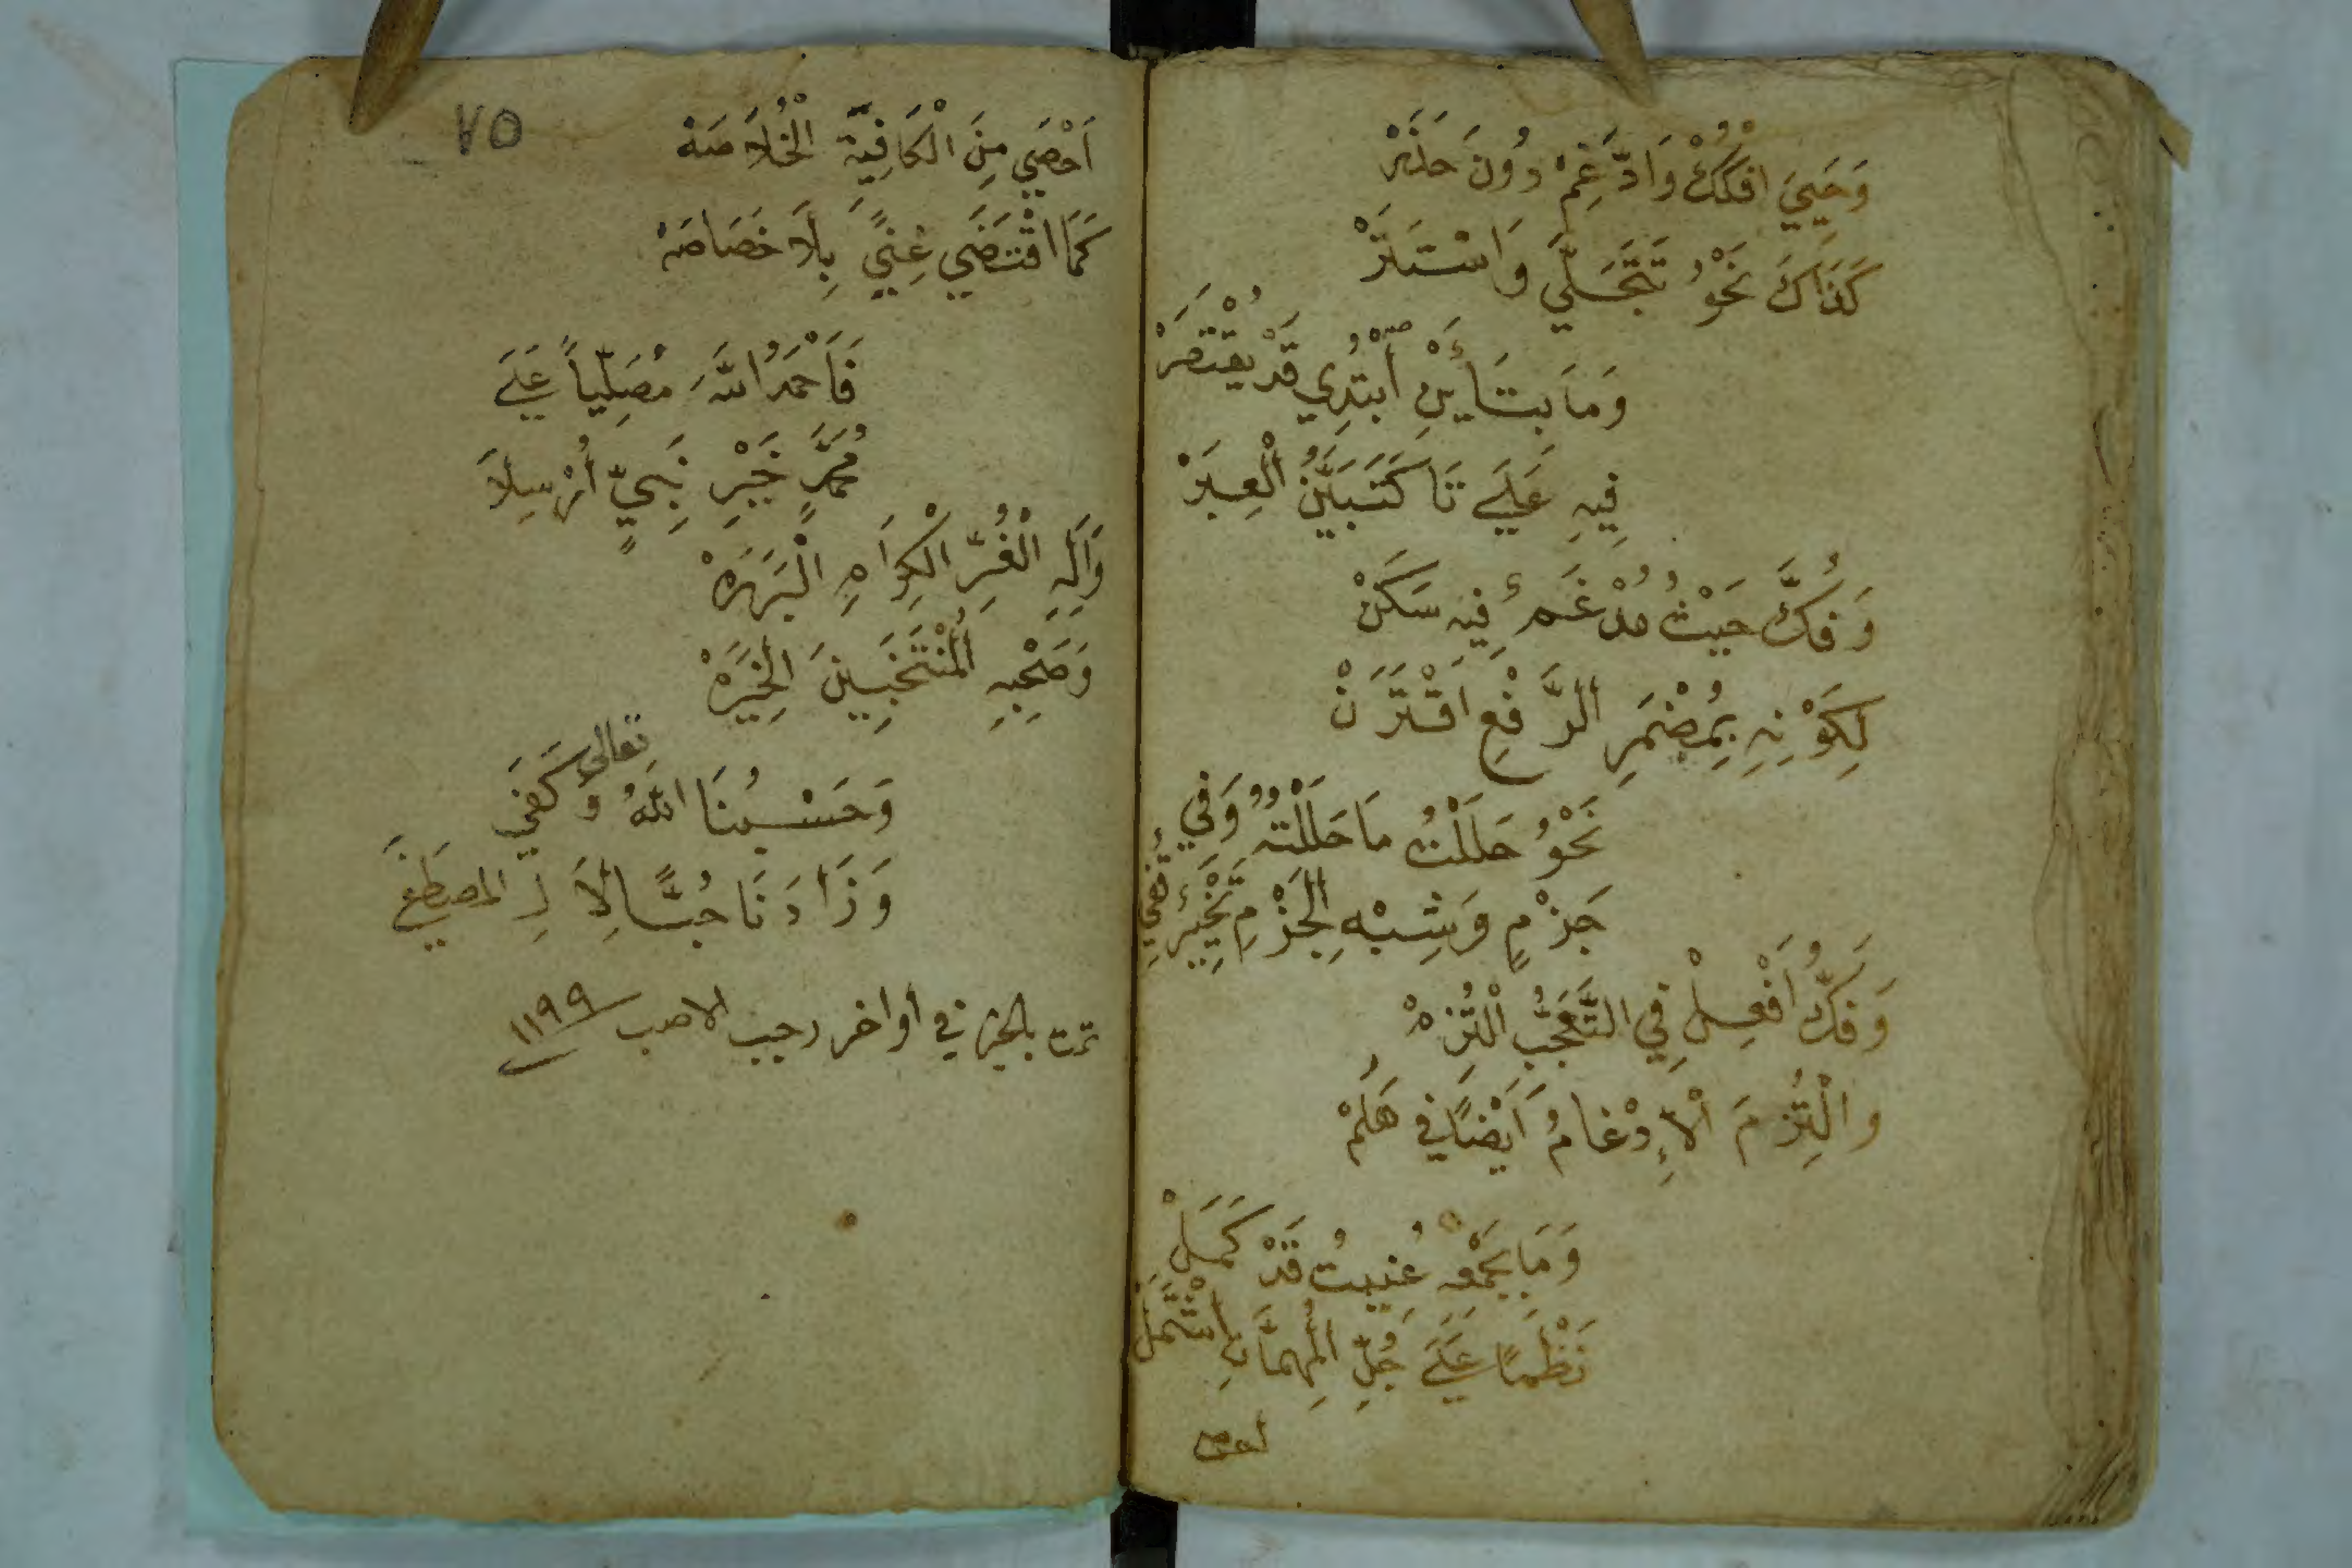 وَحَيِيَ افْكُكْ وَادَّغِمْ دُونَ حَذَرْ
كَذَاكَ نَحْوُ تَتَجَلَّى وَاسْتَتَرْ
وَمَا بِتَائَيْنِ ابْتُدِي قَدْ يُقْتَصَرْ
فِيهِ عَلَى تَا كَتَبَيَّنُ الْعِبَرْ
وَفُكَّ حَيْثُ مُدْغَمٌ فِيهِ سَكَنْ
لِكَوْنِهِ بِمُضْمَرِ الرَّفْعِ اقْتَرَنْ
نَحْوُ حَلَلْتُ مَا حَلَلْتُهُ وَفِي
جَزْمٍ وَشِبْهِ الْجَزْمِ تَخْيِيرٌ قُفِي
وَفَكُّ أَفْعِلْ فِي التَّعَجُّبِ الْتُزِمْ
وَالْتُزِمَ الْإِدْغَامُ أَيْضًا فِي هَلُمْ
وَمَا بِجَمْعِهِ عُنِيتُ قَدْ كَمَلْ
نَظْمًا عَلَى جُلِّ الْمُهِمَّاتِ اشْتَمَلْ
احصى
٧٥
أَحْصَى مِنَ الْكَافِيَةِ الْخُلَاصَهْ
كَمَا اقْتَضَى غِنًى بِلَا خَصَاصَهْ
فَأَحْمَدُ اللَّهَ مُصَلِّيًا عَلَى
مُحَمَّدٍ خَيْرِ نَبِيٍّ أُرْسِلَا
وَآلِهِ الْغُرِّ الْكِرَامِ الْبَرَرَهْ
وَصَحْبِهِ الْمُنْتَخَبِينَ الْخِيَرَهْ
وَحَسْبُنَا اللَّهُ تعالى وَكَفَى
وَزَادَنَا حُبًّا لِآلِ المصطَفَى
تمت بالخير في أواخر رجب الاصب ١١٩٩